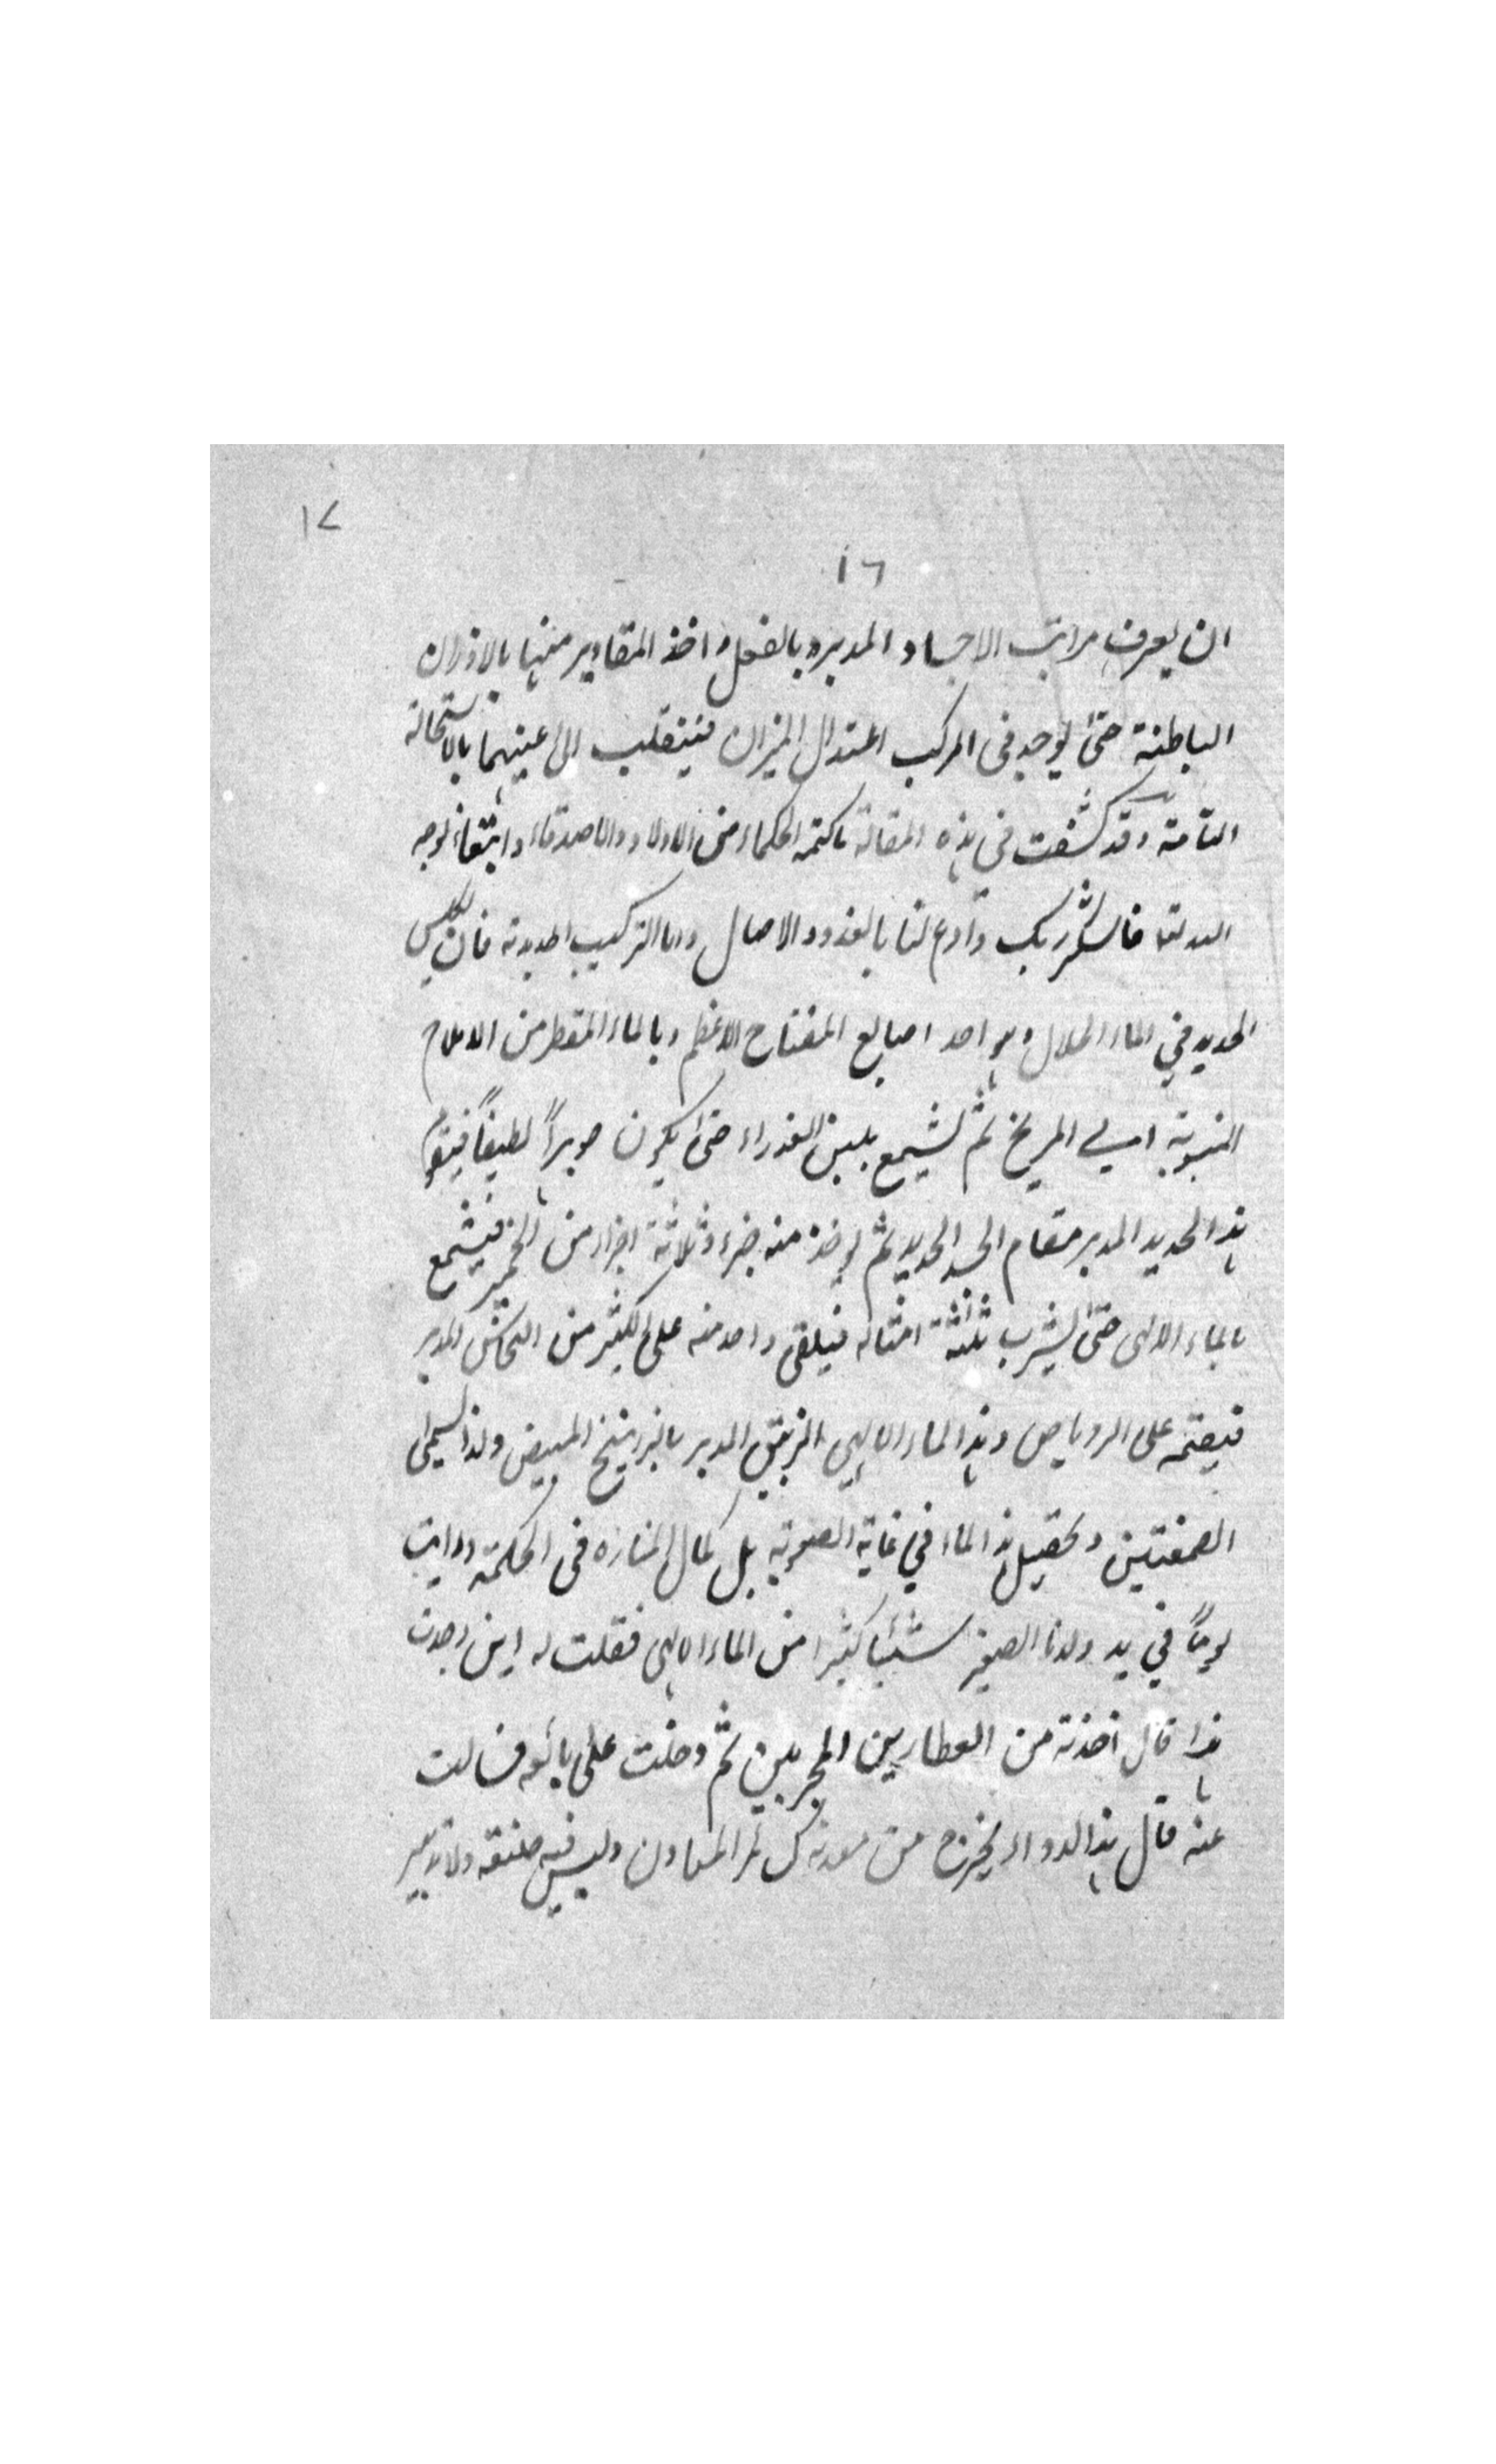 ١٧
١٦
ان يعرف مراتب الاجساد المدبره بالفعل واخذ المقادير منها بالاوزان
الباطنة حتى يوجد فى المركب اعتدال الميزان فينقلب الى عينهما بالاستحالة
التامة وقد كشفت في هذه المقالة ما كتمه الحكماء من الاولاد والاصدقاء وابتغاء لوجه
الله تعا فاشكر ربك وادع لنا بالغدو والاصال واما التركيب الحديدية فان يكلس
الحديد في الماء الحلال وهو احد اصابع المفتاح الاعظم وبالماء المقطر من الاملاح
المنسوبة الى المريخ ثم يشمع بلبن العذراء حتى يكون جوهراً لطيفاً فيقوم
هذا الحديد المدبر مقام الجسد الجديد ثم يوخذ منه جزء وثلاثة اجزاء من الخمير فيشمع
بالماء الالهى حتى يشرب ثلثة امثاله فيلقى واحد منه على الكثير من النحاس المدبر
فيصبغه على الروباص وهذا الماء الالهي الزيبق المدبر بالزرنيخ المبيض ولذا يسمى
الصمغتين وتحصيل هذا الماء في غاية الصعوبة بل كمال المناره فى الحكمة ورايت
يوماً في يد ولدنا الصغير شيئا كثيرا من الماء الالهى فقلت له اين وجدت
هذا قال اخذته من العطارين المجربين ثم دخلت على بائعه فسالت
عنه قال هذا الدواء يخرج من معدنه كسائر المعادن وليس فيه صنعة ولا تدبير